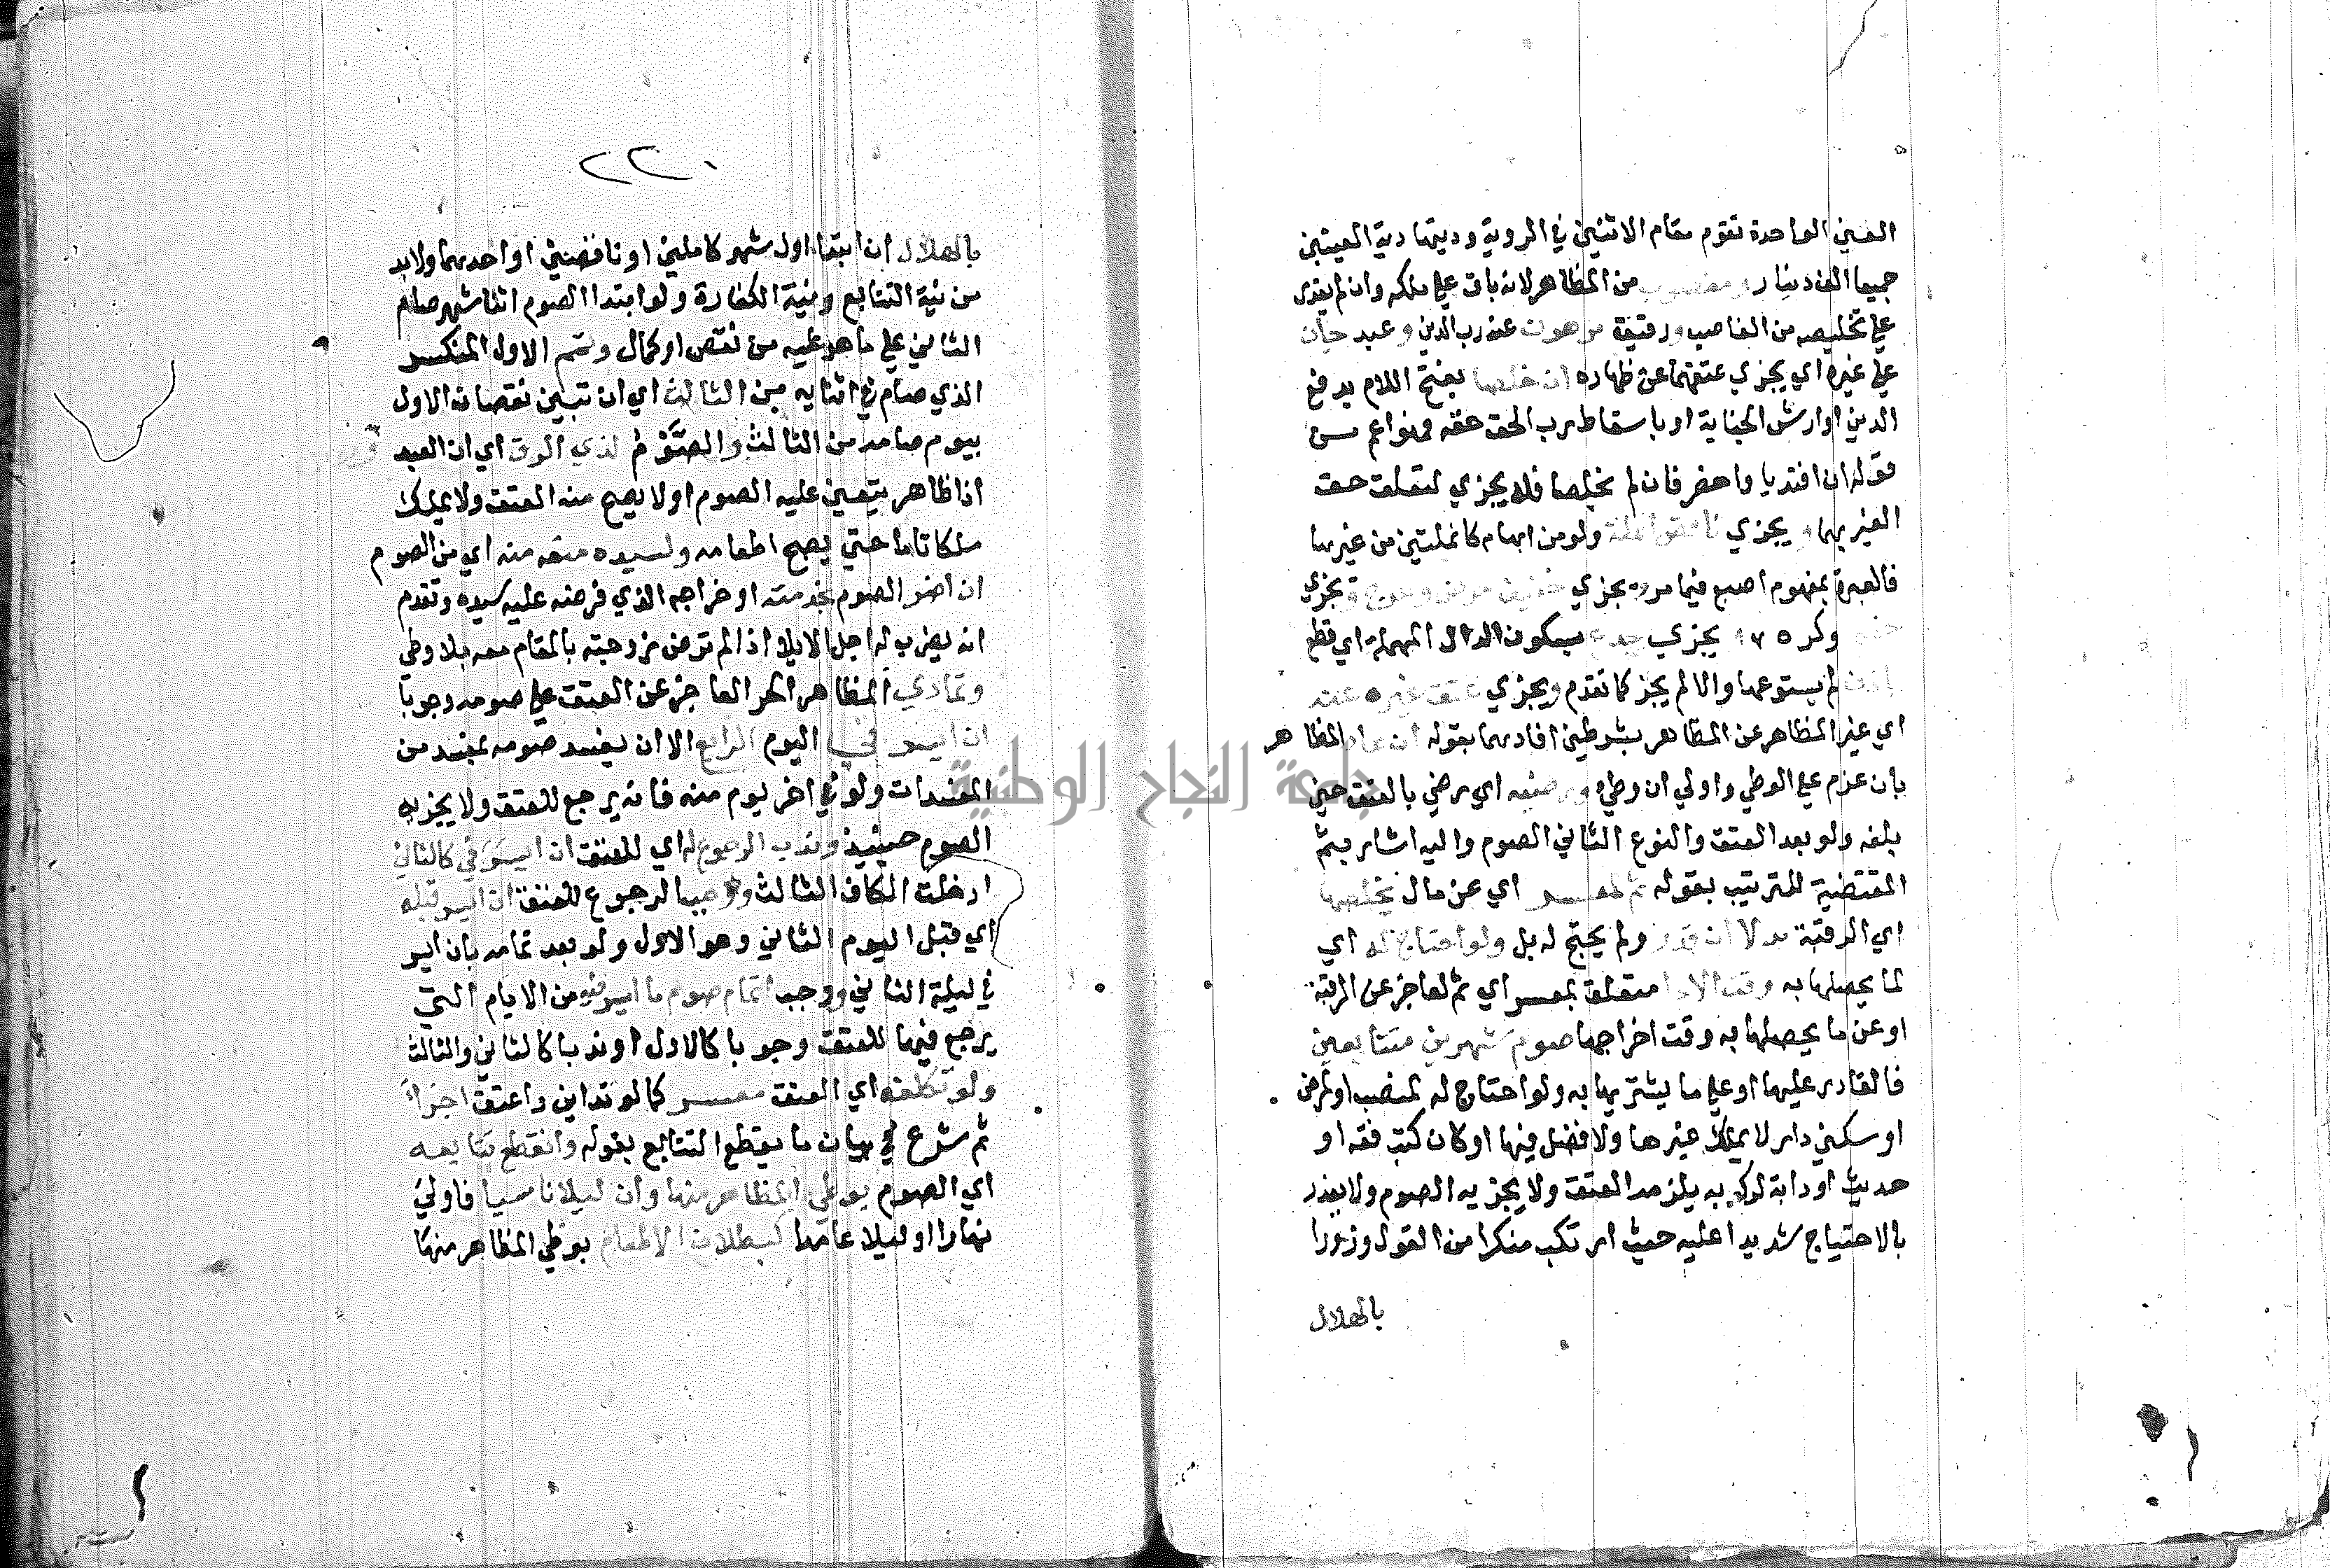 العين الواحدة تقوم مقام الاثنين في الروية وديتها دية العينين
جميعا الف دينار ومغصوب من المظاهر لانه باق علي ملكه وان لم يقدر
علي تخليصه من الغاصب ورقيق مرهون عند رب الدين وعبد جان
علي غيره اي يجزي عتقهما عن ظهاره ان خلصا بفتح اللام بدفع
الدين او ارش الجناية او باسقاط رب الحق حقه فهو اعم من
قوله ان افتديا واحضر فان لم يخلصا فلا يجزي لتعلق حق
الغير بهما ويجزي ناقص انملة ولو من ابهام كانملتين من غيرها
فالعبرة بمفهوم اصبع فيما مر ويجزي خفيف مرض وعرج ويجزي
وكره يجزي جدع بسكون الدال المهملة اي قطع
اذن لم يستوعبها والا لم يجز كما تقدم ويجزي عتق غيره عنه
اي غير المظاهر عن المظاهر بشرطين افادهما بقوله ان عاد المظاهر
بان عزم علي الوطي واولي ان وطي ورضيه اي رضي بالعتق حين
بلغه ولو بعد العتق والنوع الثاني الصوم واليه اشار بثم
المقتضية للترتيب بقوله ثم لمعسر اي عن مال يخلصها
اي الرقبة بدلا ان قدر ولم يحتج له بل ولو احتاج له اي
لما يحصلها به وقت الادا متعلق بمعسر اي ثم لعاجز عن الرقبة
او عن ما يحصلها به وقت اخراجها صوم شهرين متتابعين
فالقادر عليها او علي ما يشتريها به ولو احتاج له لمنصب او لمرض
او سكني دار لا يملك غيرها ولا فضل فيها او كان كتب فقه او
حديث او دابة لركوبه يلزمه العتق ولا يجزيه الصوم ولا يعذر
بالاحتياج شديدا عليه حيث ارتكب منكرا من القول وزورا
بالهلال
٢٢٠
بالهلال ان ابتدا اول شهر كاملين او ناقصين او احدهما ولابد
من نية التتابع ونية الكفارة ولو ابتدا الصوم اثنا شهر صام
الثاني علي ما هو عليه من نقص او كمال وتمم الاول المنكسر
الذي صام في اثنايه من الثالث اي ان تبين نقصان الاول
بيوم صامه من الثالث والصوم لذي الرق اي ان العبد
اذا ظاهر يتعين عليه الصوم اولا يصح منه العتق ولا يملك
ملكا تاما حتي يصح اطعامه ولسيده منعه منه اي من الصوم
ان اضر الصوم بخدمته او خراجه الذي فرضه عليه سيده وتقدم
انه يضرب له اجل الايلا اذا لم ترض زوجته بالمقام معه بلا وطي
وتمادي المظاهر الحر العاجز عن العتق علي صومه وجوبا
ان ايسر في اليوم الرابع الا ان يفسد صومه بمفسد من
المفسدات ولو في اخر يوم منه فانه يرجع للعتق ولا يجزيه
الصوم حينيذ وندب الرجوع له اي للعتق ان ايسر في كالثاني
ادخلت الكاف الثالث ووجب الرجوع للعتق ان ايسر قبله
اي قبل اليوم الثاني وهو الاول ولو بعد تمامه بان ايسر
في ليلة الثاني ووجب اتمام صوم ما ايسر فيه من الايام التي
يرجع فيها للعتق وجوبا كالاول او ندبا كالثاني والثالث
ولو تكلفه اي العتق معسر كما لو تداين واعتق اجزاء
ثم شرع في بيان ما يقطع التتابع بقوله وانقطع تتابعه
اي الصوم بوطي المظاهر منها وان ليلا ناسيا فاولي
نهارا او ليلا عامدا كبطلان الاطعام بوطي المظاهر منها
جامعة النجاح الوطنية